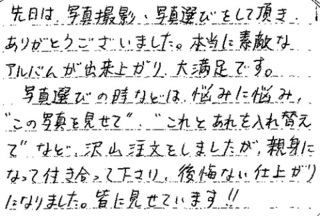 先日は、写真撮影、写真選びをして頂き、
ありがとうございました。本当に素敵な
アルバムが出来上がり、大満足です。
写真選びの時などは、悩みに悩み、
"この写真を見せて"、"これとあれを入れ替え
て"など、沢山注文をしましたが、親身に
なって付き合って下さり、後悔ない仕上がり
になりました。皆に見せています!!